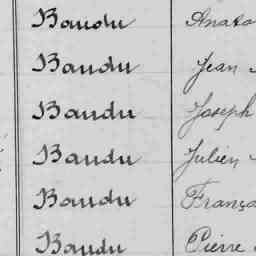 Baudu Anato
Baudu Jean
Baudu Joseph
Baudu Julien
Baudu França
Baudu Pierre